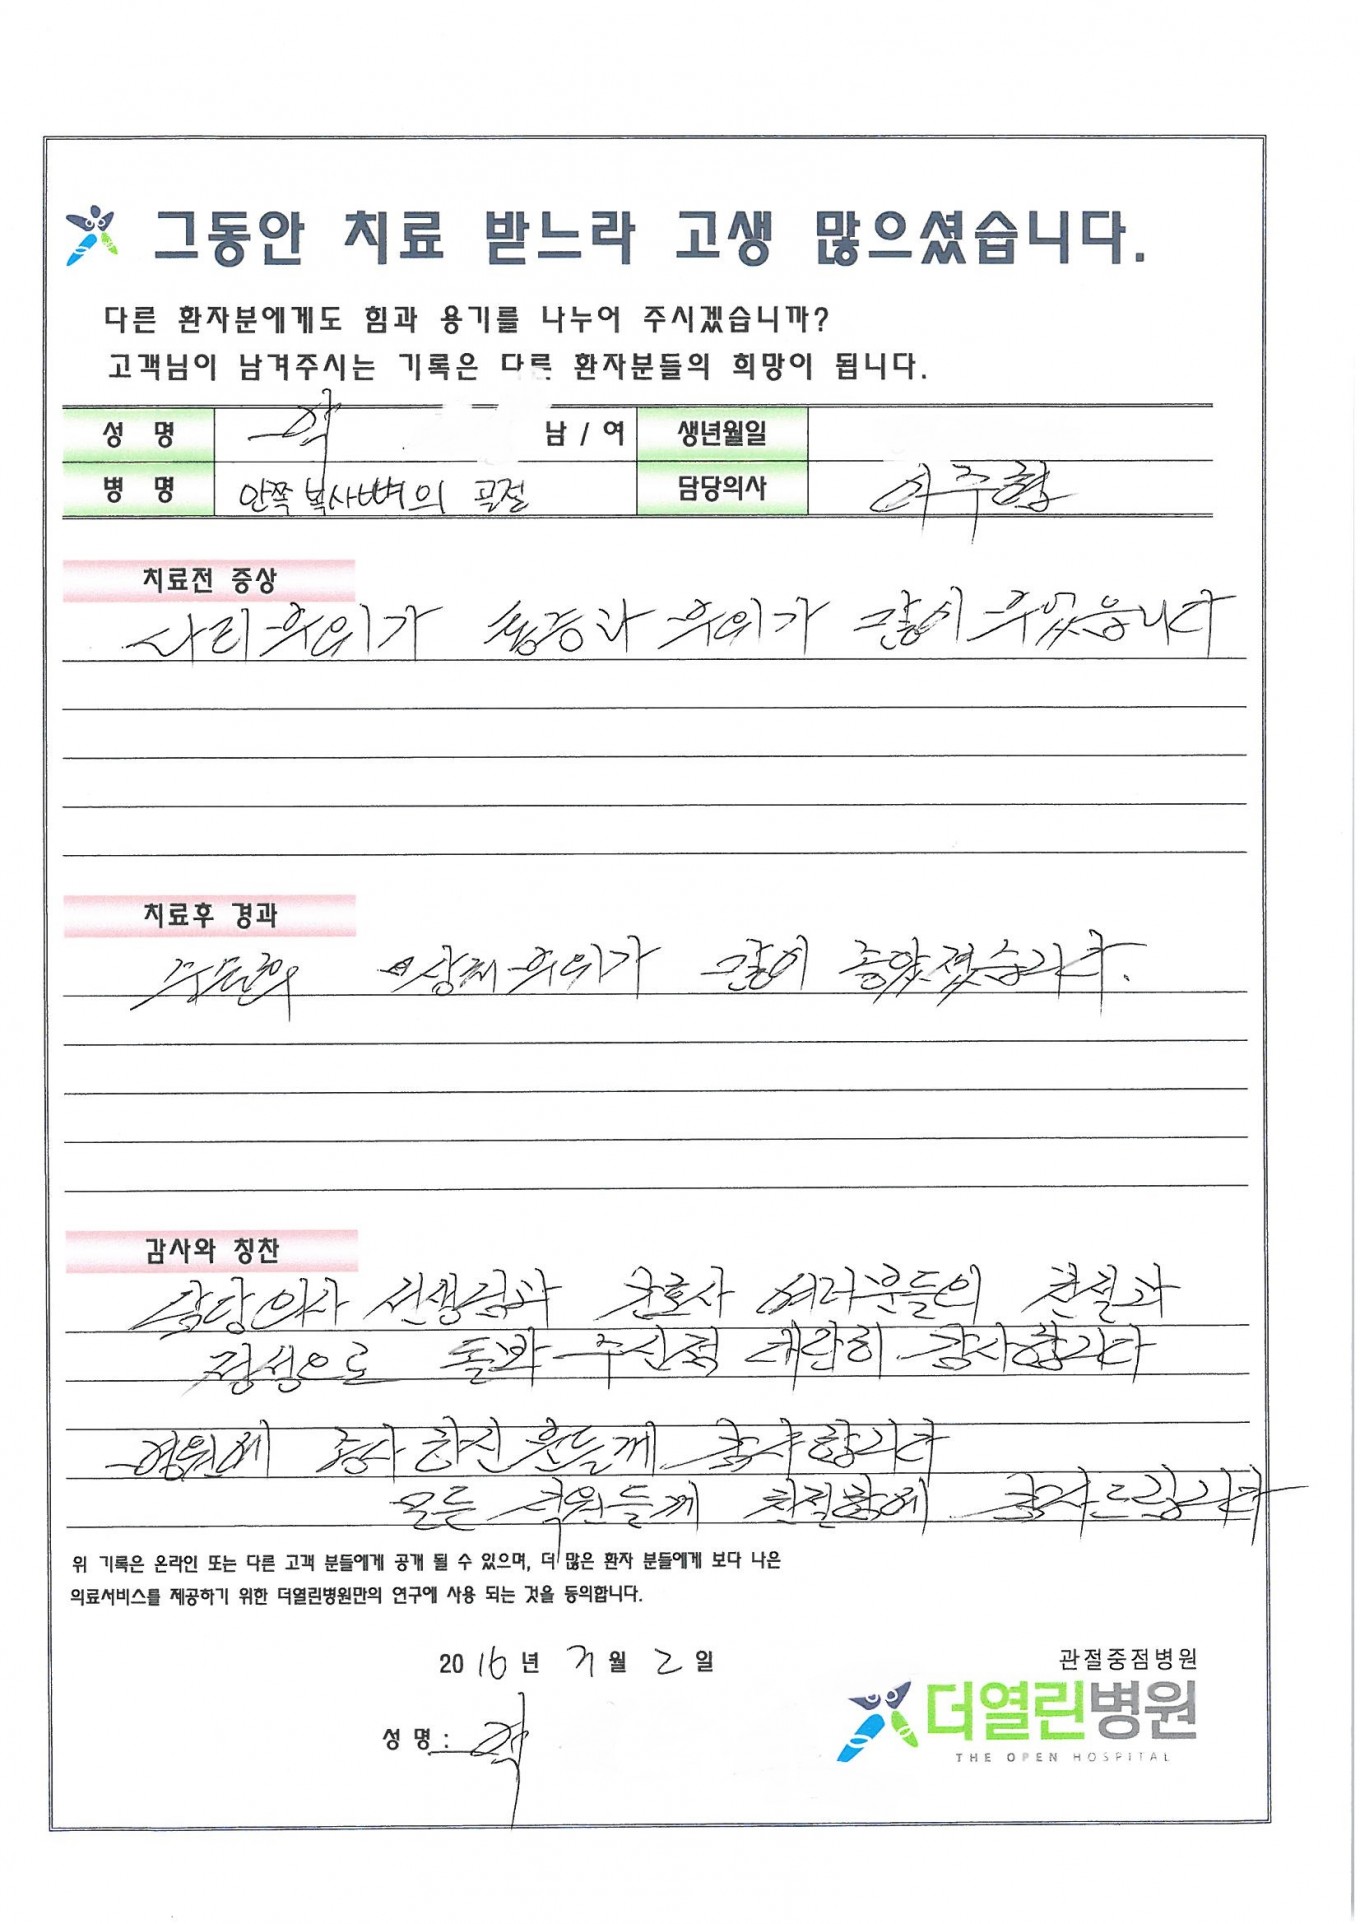 그동안 치료 받느라 고생 많으셨습니다.
다른 환자분에게도 힘과 용기를 나누어 주시겠습니까?
고객님이 남겨주시는 기록은 다른 환자분들의 희망이 됩니다.
성 명 남 / 여 생년월일
병 명 안쪽 복사뼈의 골절 담당의사 이주형
치료전 증상
다리부위가 통증과 부위가 많이
치료후 경과
수술후 상처부위가 많이
감사와 칭찬
담당의사 선생님과 간호사 여러분들의 친절과
정성으로 돌봐 주신점 대단히 감사합니다
병원에 종사 하신 분들께 감사합니다
모든 직원들께 친절함에 감사드립니다
위 기록은 온라인 또는 다른 고객 분들에게 공개 될 수 있으며, 더 많은 환자 분들에게 보다 나은
의료서비스를 제공하기 위한 더열린병원만의 연구에 사용 되는 것을 동의합니다.
2016년 7월 2일
성 명 :
관절중점병원
더열린병원
THE OPEN HOSPITAL